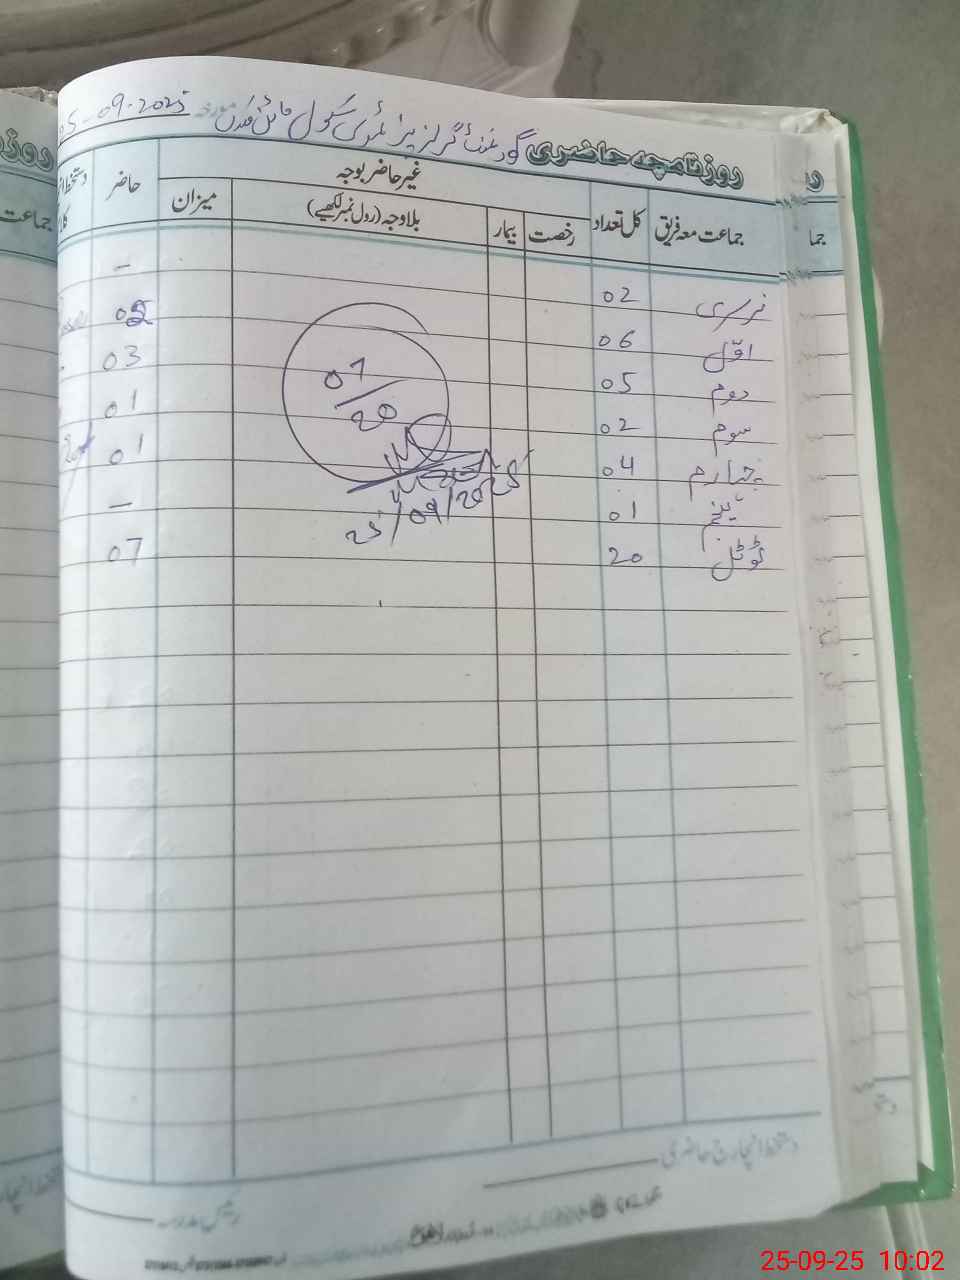 روزنامچہ حاضری گورنمنٹ گرلز پرائمری سکول مورخہ 05-09-2025
جماعت معہ فریق کل تعداد غیر حاضر بوجہ حاضر
رخصت بیمار بلاوجہ (رول نمبر لکھیے) میزان
نرسری 02 –
اوّل 06 02
دوم 05 03
سوم 02 01
چہارم 04 01
پنجم 01 –
ٹوٹل 20 07
07/20
25/09/2025
دستخط انچارج حاضری
رئیس مدرسہ
25-09-25 10:02